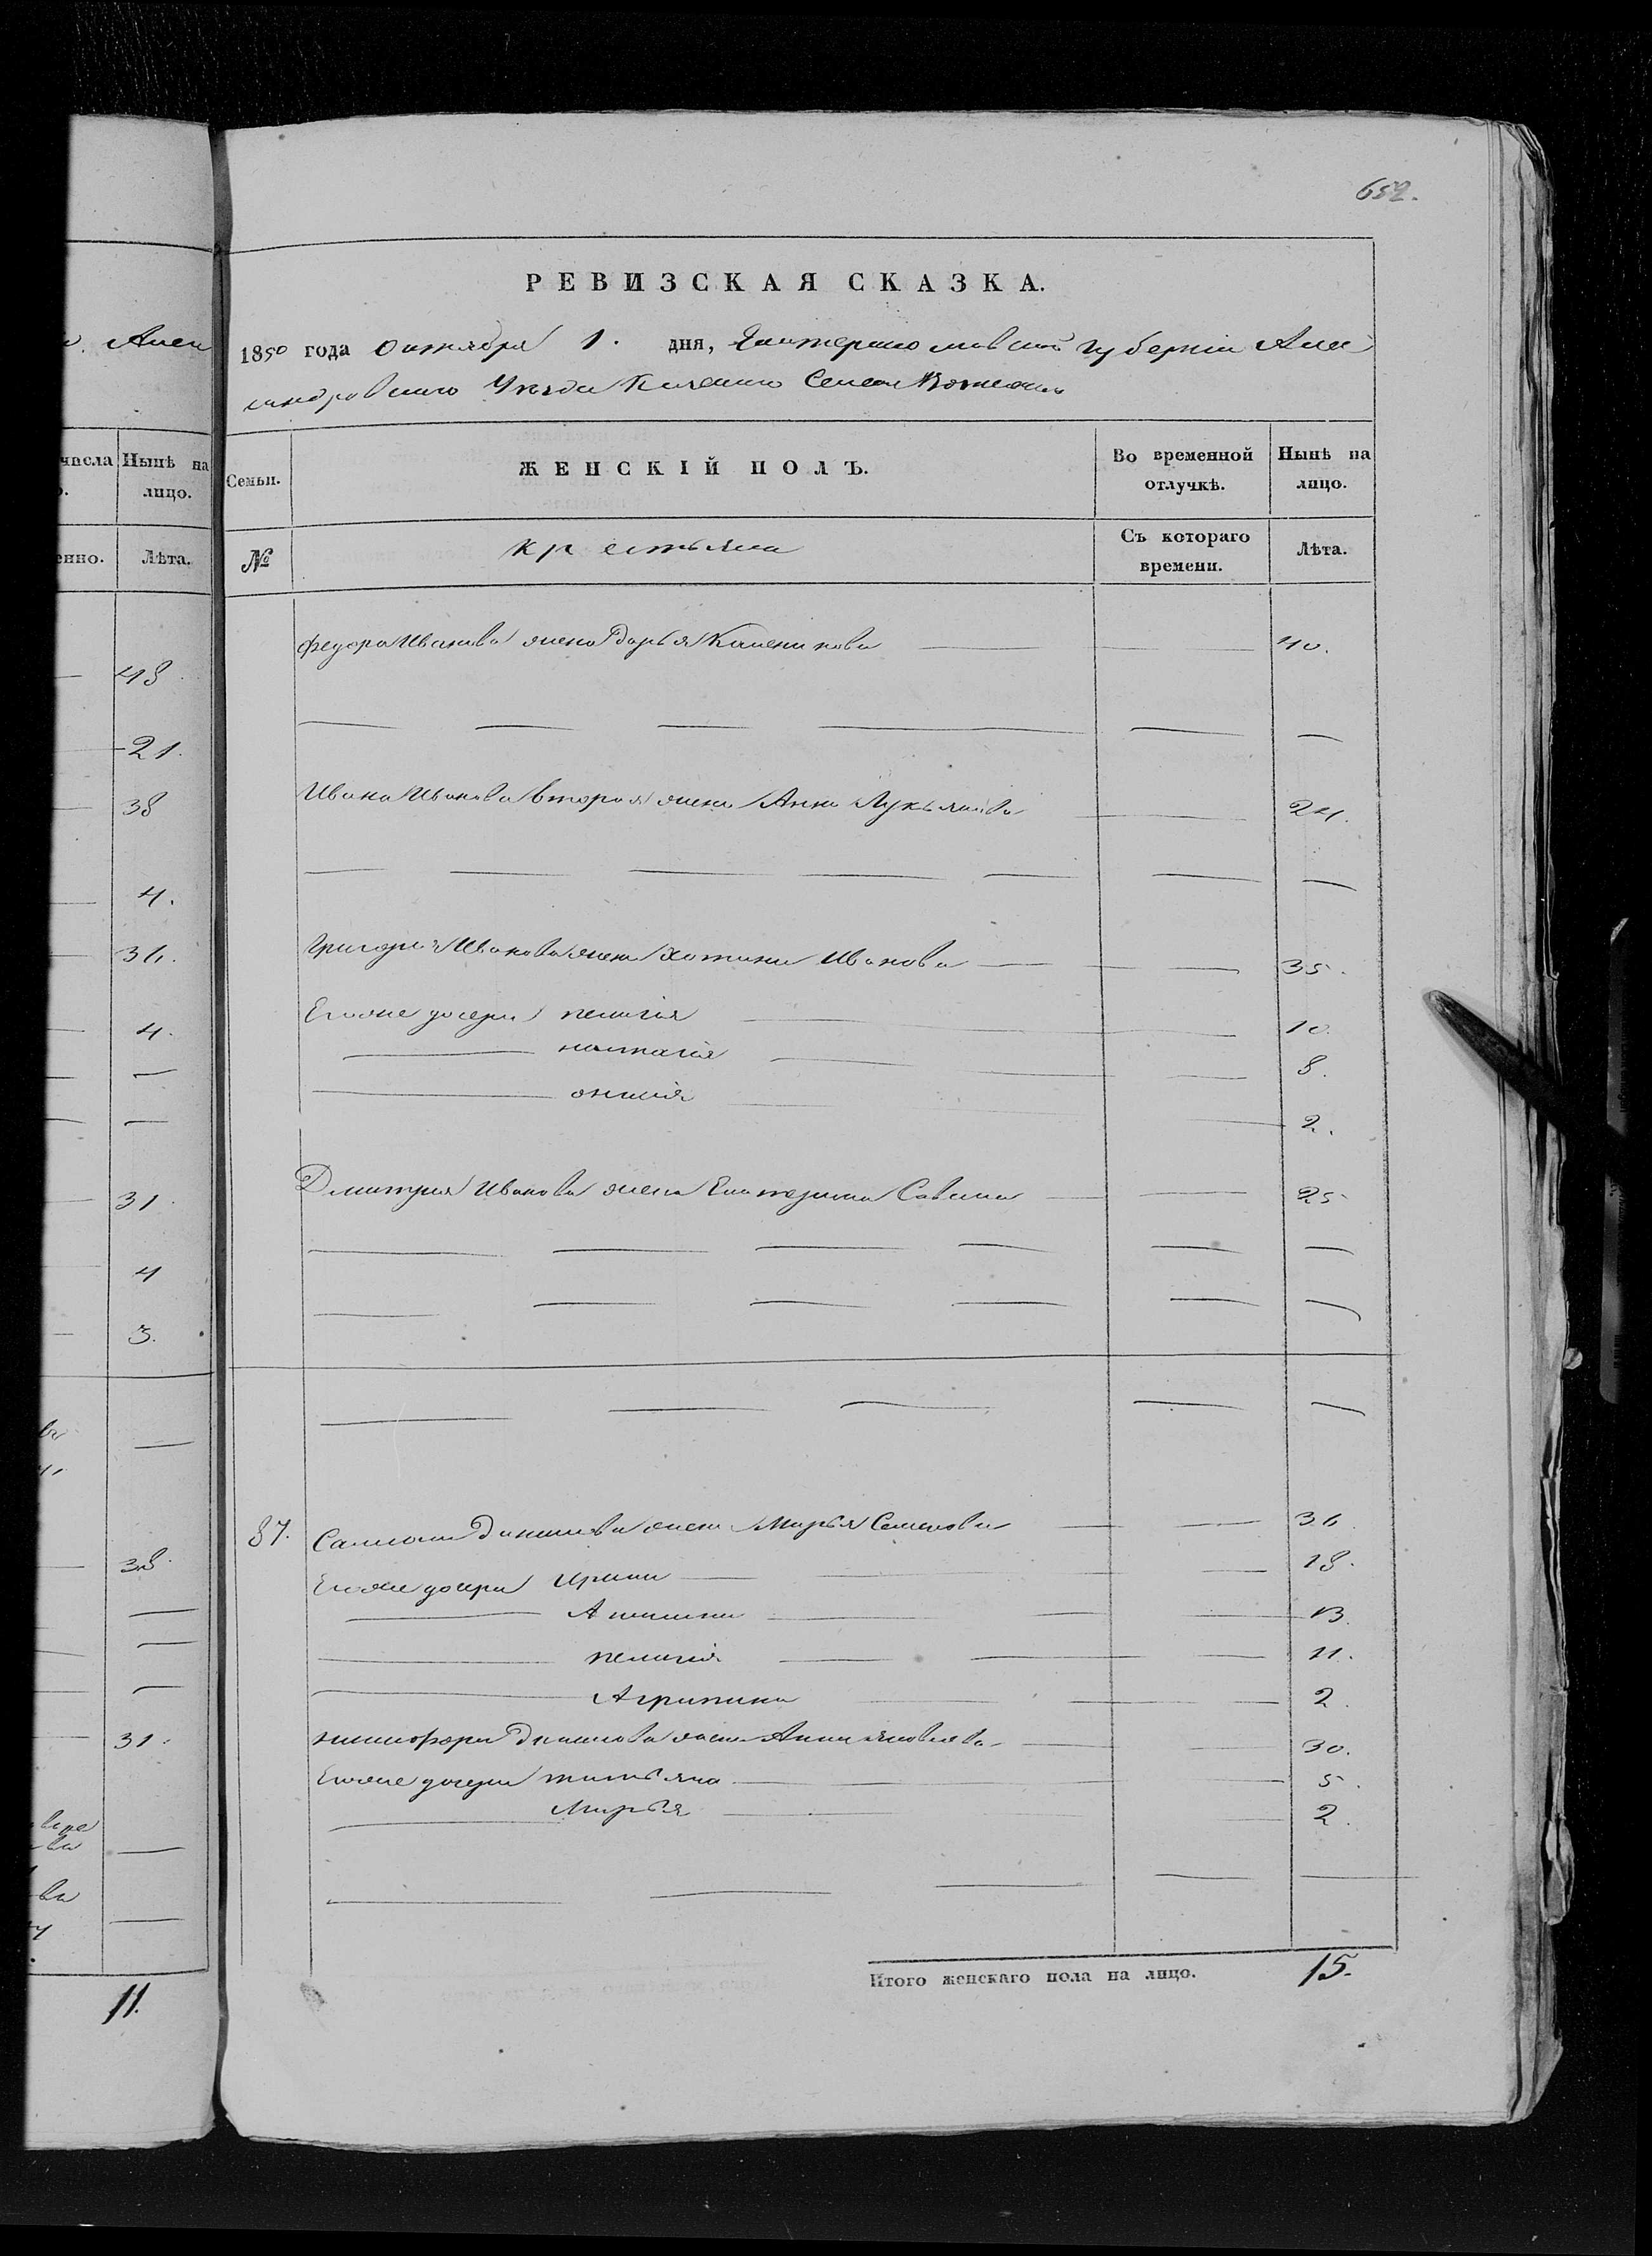 652.
Алек
РЕВИЗСКАЯ СКАЗКА.
1850 года октября 1. дня, Екатеринославской губернии Алек
сандровского Уезда Села
числа
Нынѣ на лицо.
Семьи.
ЖЕНСКІЙ ПОЛЪ.
Во временной отлучкѣ.
Нынѣ на лицо.
енно.
Лѣта.
№
крестьяна
Съ котораго времени.
Лѣта.
48
21.
38
4.
36.
4.
31.
4
3.
38.
31.
11.
Федора Иванова жена Дарья 40.
Ивана Иванова вторая жена Анна Лукьянова 24.
Григорія Иванова жена Иванова 35.
Егоже дочери пелагія 10.
наталія 8.
2.
Дмитрия Иванова жена Екатерина Савина 25
87. Самсона Данилова жена Марья Семенова 36
Егоже дочери Ирина 18.
Акилина 13.
пелагія 11.
Агрипина 2.
никифора Данилова жена Анна яковлева 30.
Егоже дочери татьяна 5.
Марья 2.
Итого женскаго пола на лицо. 15.